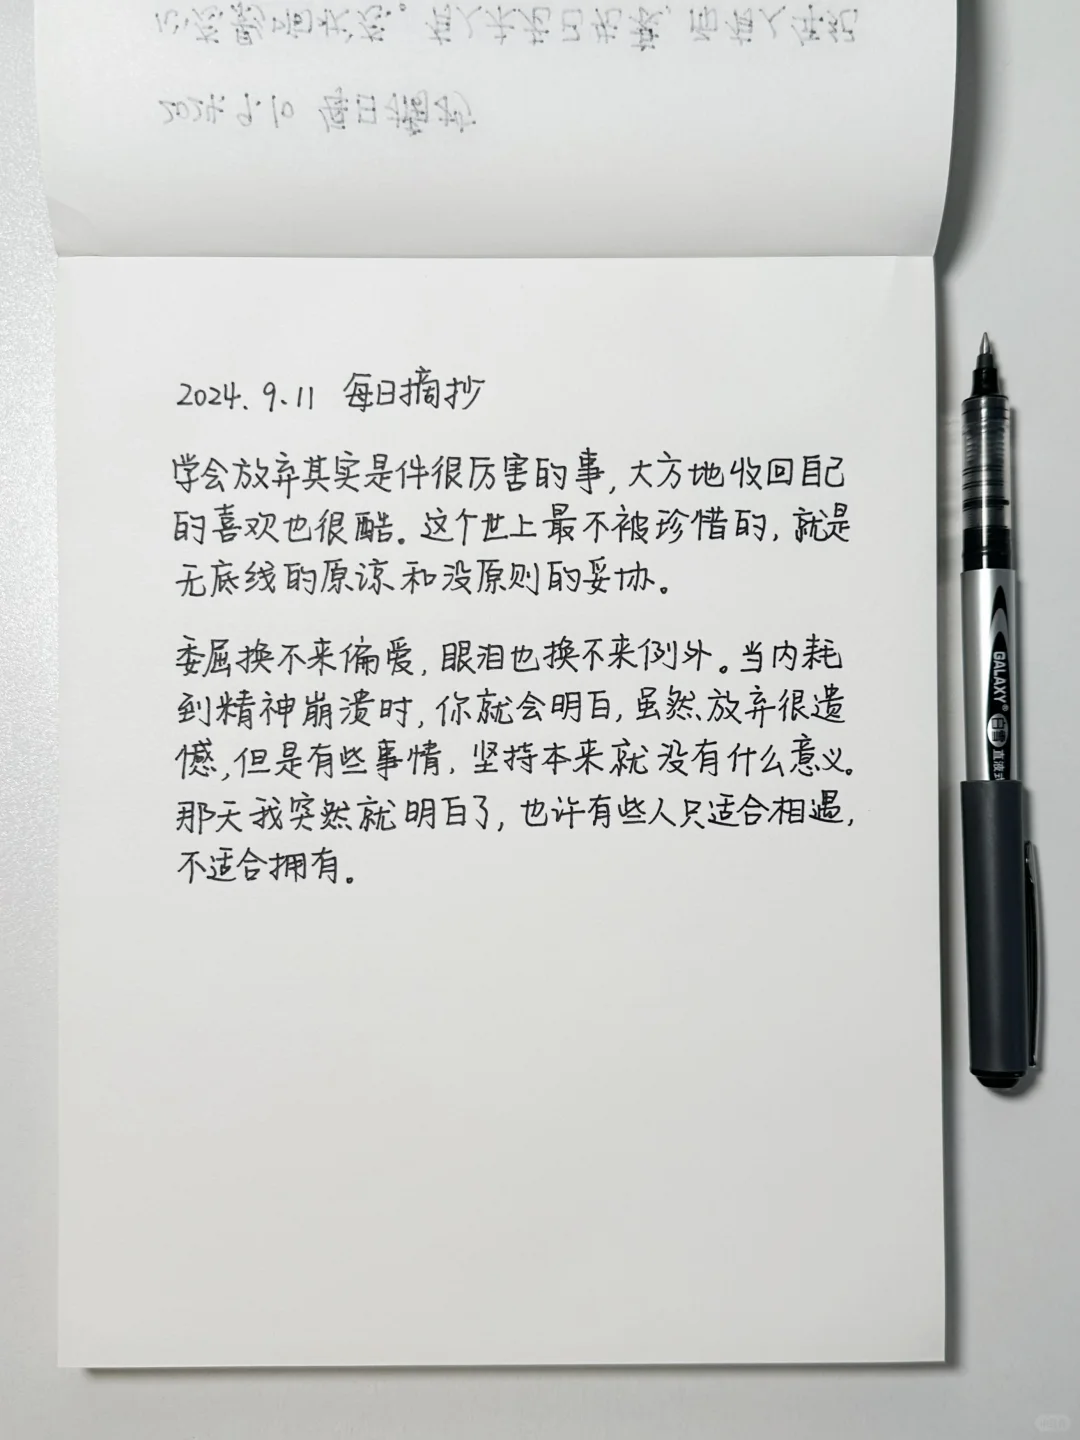 2024.9.10 每日摘抄
2024.9.11 每日摘抄
学会放弃其实是件很厉害的事,大方地收回自己
的喜欢也很酷。这个世上最不被珍惜的,就是
无底线的原谅和没原则的妥协。
委屈换不来偏爱,眼泪也换不来例外。当内耗
到精神崩溃时,你就会明白,虽然放弃很遗
憾,但是有些事情,坚持本来就没有什么意义。
那天我突然就明白了,也许有些人只适合相遇,
不适合拥有。
GALAXY®
白雪
直液式